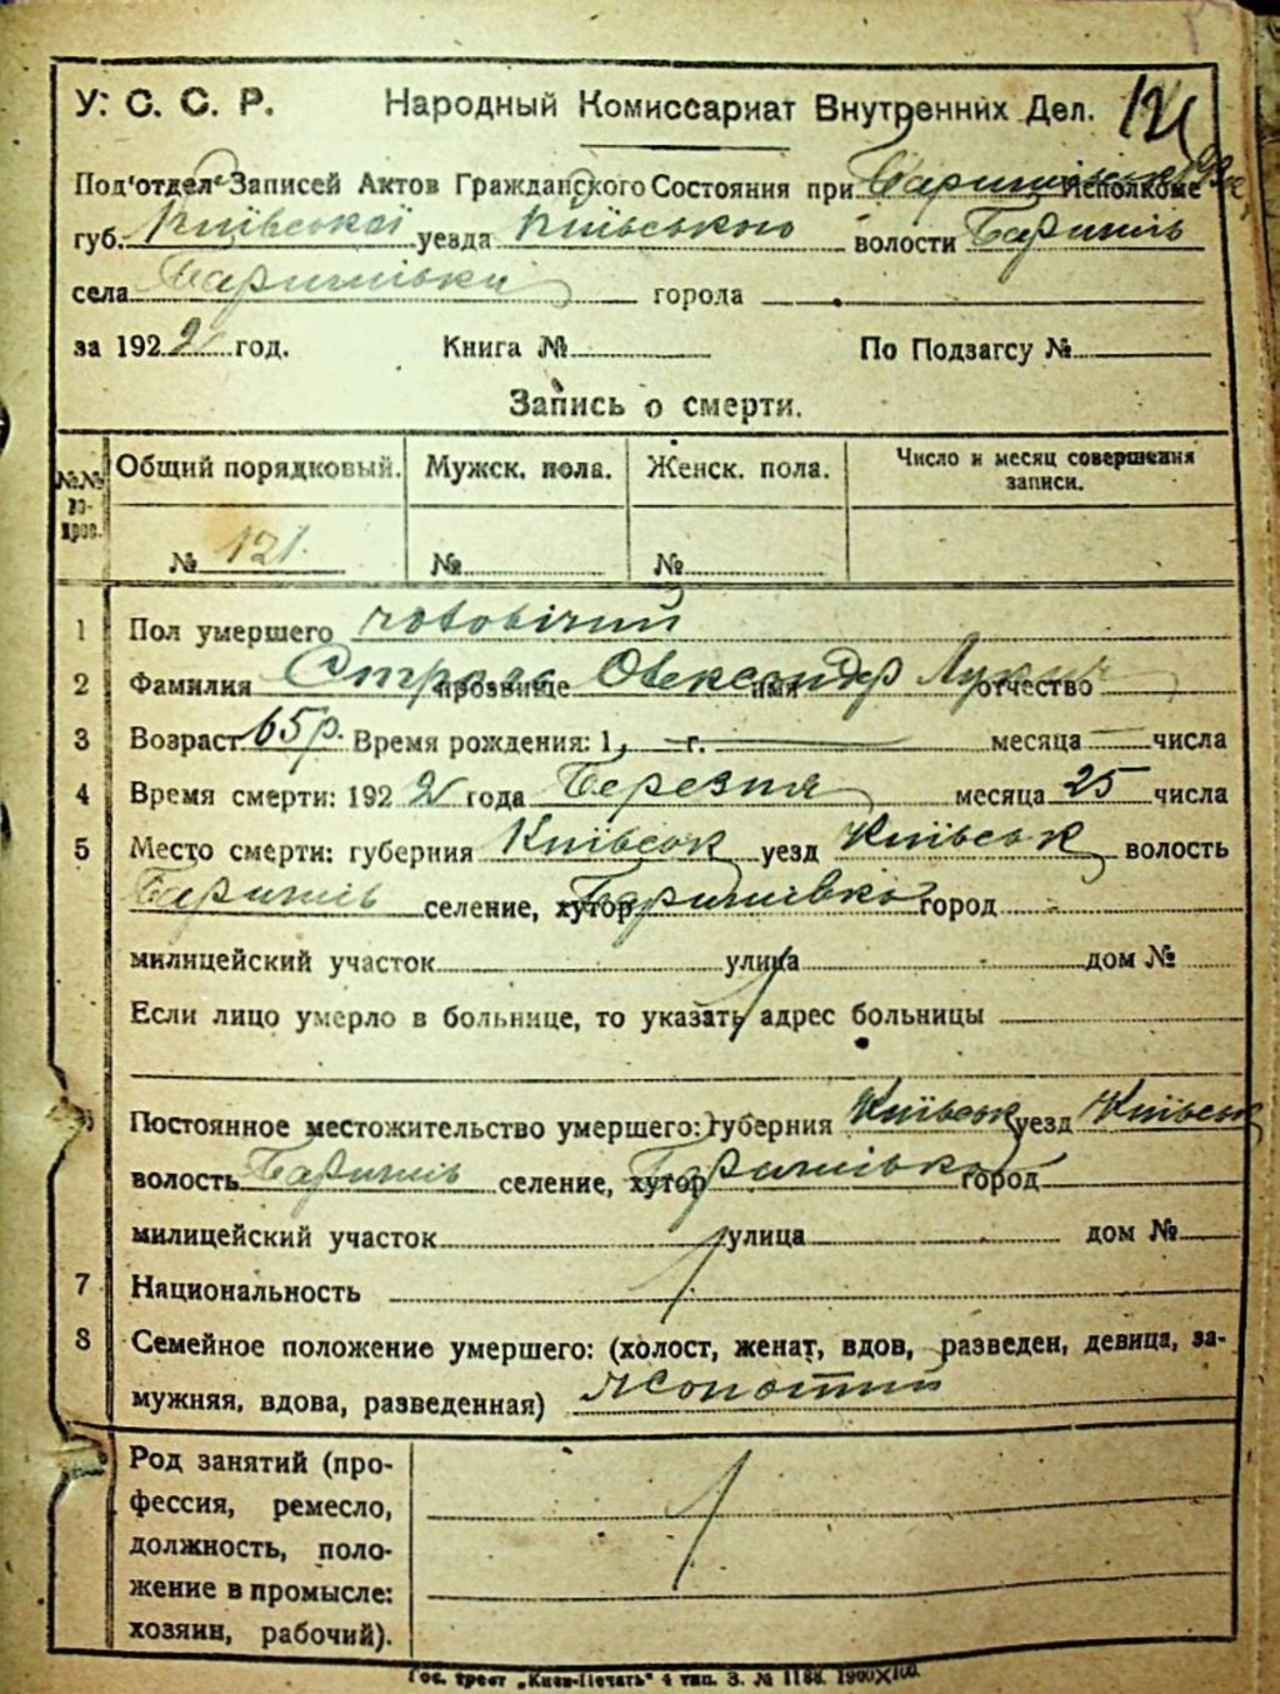 У. С. С. Р. Народный Комиссариат Внутренних Дел. 121
Под'отдел Записей Актов Гражданского Состояния при Исполкоме
губ. Київської уезда Київського волости Баришів
села Баришівки города
за 1922 год. Книга № По Подзагсу №
Запись о смерти.
№№ вопрос. Общий порядковый. Мужск. пола. Женск. пола. Число и месяц совершения записи.
№ 121. № №
1 Пол умершего чоловічий
2 Фамилия прозвище Олександр имя отчество
3 Возраст 65 р. Время рождения: 1 г. месяца числа
4 Время смерти: 1922 года Березня месяца 25 числа
5 Место смерти: губерния Київськ уезд Київськ волость
Баришів селение, хутор Баришівка город
милицейский участок улица дом №
Если лицо умерло в больнице, то указать адрес больницы
Постоянное местожительство умершего: губерния Київськ уезд Київськ
волость Баришів селение, хутор Баришівка город
милицейский участок улица дом №
7 Национальность
8 Семейное положение умершего: (холост, женат, вдов, разведен, девица, за-
мужняя, вдова, разведенная) жонатий
Род занятий (про-
фессия, ремесло,
должность, поло-
жение в промысле:
хозяин, рабочий).
Гос. трест „Киев-Печать“ 4 тип. З. № 1188. 1900×100.